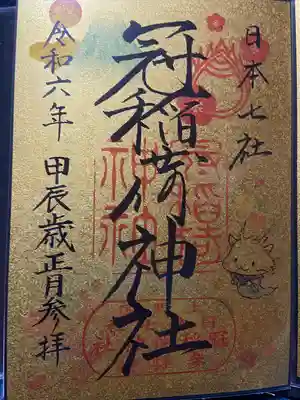 日本七社
冠稲荷神社
令和六年
甲辰歳正月参拝